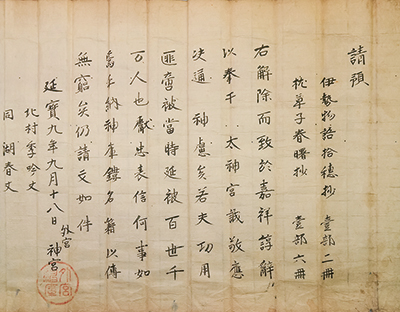 請預
伊勢物語拾穂抄 壹部二冊
枕草子春曙抄 壹部六冊
右解除而致於嘉祥諄解
以奉于 太神宮誠敬應
決通 神慮矣若夫功用
匪啻被當時延被百世千
万人也獻忠表信何事如
焉永納神庫鏤名籍以傳
無窮矣仍請文如件
延寶九年九月十八日 外宮 神宮
北村季吟丈
同湖春丈